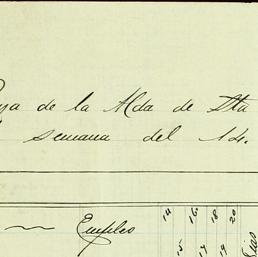 de la Hda de Sta
semana del 14.
Empleo
14 16 18 20
15 17 19
Dias